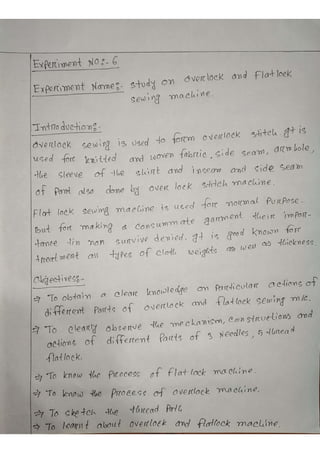 Experiment NO:- 6
Experiment Name:- study on overlock and flatlock
sewing machine.
Introduction:-
Overlock sewing is used to form overlock stitch. It is
used for knitted and woven fabric, side seam, armhole,
the sleeve of the shirt and inseam and side seam
of Pant also done by over lock stitch machine.
Flat lock sewing machine is used for normal Purpose.
but for making a consummate garment their impor-
tance tin non survive denied. It is good known for
treatment all types of cloth weights as well as thickness.
Objectives:-
⇒ To obtain a clear knowledge on Particular actions of
different Parts of overlock and flatlock sewing m/c.
⇒ To clearly observe the mechanism, constructions and
actions of different Parts of 3 Needles, 5 thread
flatlock.
⇒ To know the Process of flat lock machine.
⇒ To know the Process of overlock machine.
⇒ To sketch the thread Path
⇒ To learnt about overlock and flatlock machine.